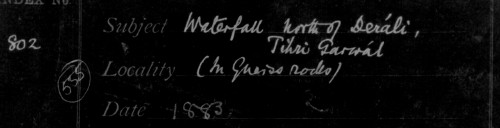 INDEX No
802
Subject Waterfall north of Deráli,
Tihri Garwál
Locality (In Gneiss rocks)
Date 1883.